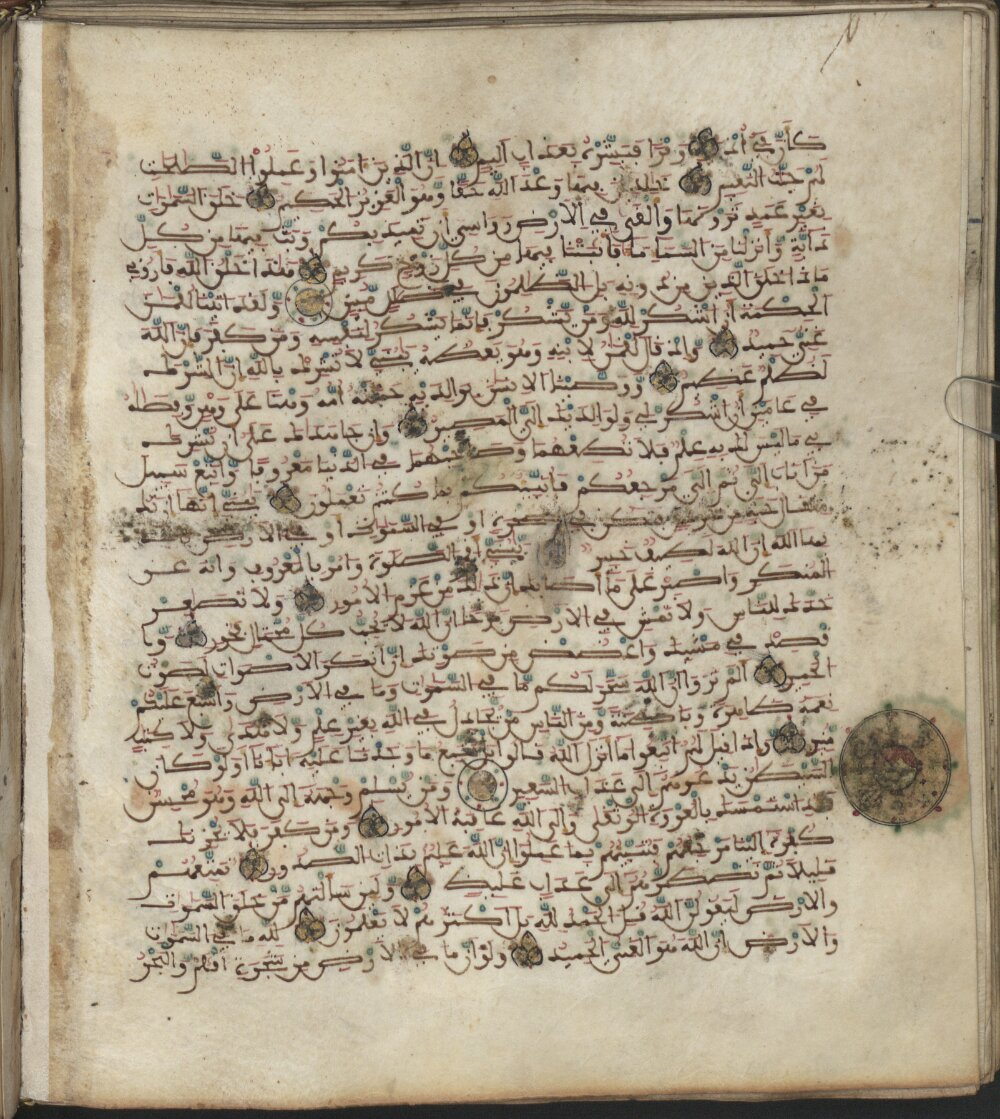 كأن في أذنيه وقرا فبشره بعذاب أليم إن الذين ءامنوا وعملوا الصلحت
لهم جنت النعيم خلدين فيها وعد الله حقا وهو العزيز الحكيم خلق السموات
بغير عمد ترونها وألقى في الارض رواسي أن تميد بكم وبث فيها من كل
دابة وأنزلنا من السماء ماء فأنبتنا فيها من كل زوج كريم هذا خلق الله فأروني
ماذا خلق الذين من دونه بل الظلمون في ضلل مبين ولقد اتينا لقمن
الحكمة أن اشكر لله ومن يشكر فإنما يشكر لنفسه ومن كفر فإن الله
غني حميد وإذ قال لقمن لابنه وهو يعظه يبني لا تشرك بالله إن الشرك
لظلم عظيم ووصينا الانسن بوالديه حملته أمه وهنا على وهن وفصله
في عامين أن اشكر لي ولوالديك إلي المصير وإن جاهداك على أن تشرك
بي ما ليس لك به علم فلا تطعهما وصاحبهما في الدنيا معروفا واتبع سبيل
من أناب إلي ثم إلي مرجعكم فأنبئكم بما كنتم تعملون يبني إنها إن تك
مثقال حبة من خردل فتكن في صخرة او في السموات او في الارض يات
بها الله إن الله لطيف خبير يبني أقم الصلوة وامر بالمعروف وانه عن
المنكر واصبر على ما أصابك إن ذلك من عزم الامور ولا تصعر
خدك للناس ولا تمش في الارض مرحا إن الله لا يحب كل مختال فخور
واقصد في مشيك واغضض من صوتك إن أنكر الاصوات لصوت
الحمير ألم تروا أن الله سخر لكم ما في السموات وما في الارض وأسبغ عليكم
نعمه ظاهرة وباطنة ومن الناس من يجادل في الله بغير علم ولا هدى ولا كتب
منير وإذا قيل لهم اتبعوا ما أنزل الله قالوا بل نتبع ما وجدنا عليه اباءنا أولو كان
الشيطن يدعوهم إلى عذاب السعير ومن يسلم وجهه إلى الله وهو محسن
فقد استمسك بالعروة الوثقى وإلى الله عاقبة الامور ومن كفر فلا يحزنك
كفره إلينا مرجعهم فننبئهم بما عملوا إن الله عليم بذات الصدور نمتعهم
قليلا ثم نضطرهم إلى عذاب غليظ ولئن سألتهم من خلق السموات
والارض ليقولن الله قل الحمد لله بل أكثرهم لا يعلمون لله ما في السموات
والارض إن الله هو الغني الحميد ولو أن ما في الارض من شجرة اقلم والبحر